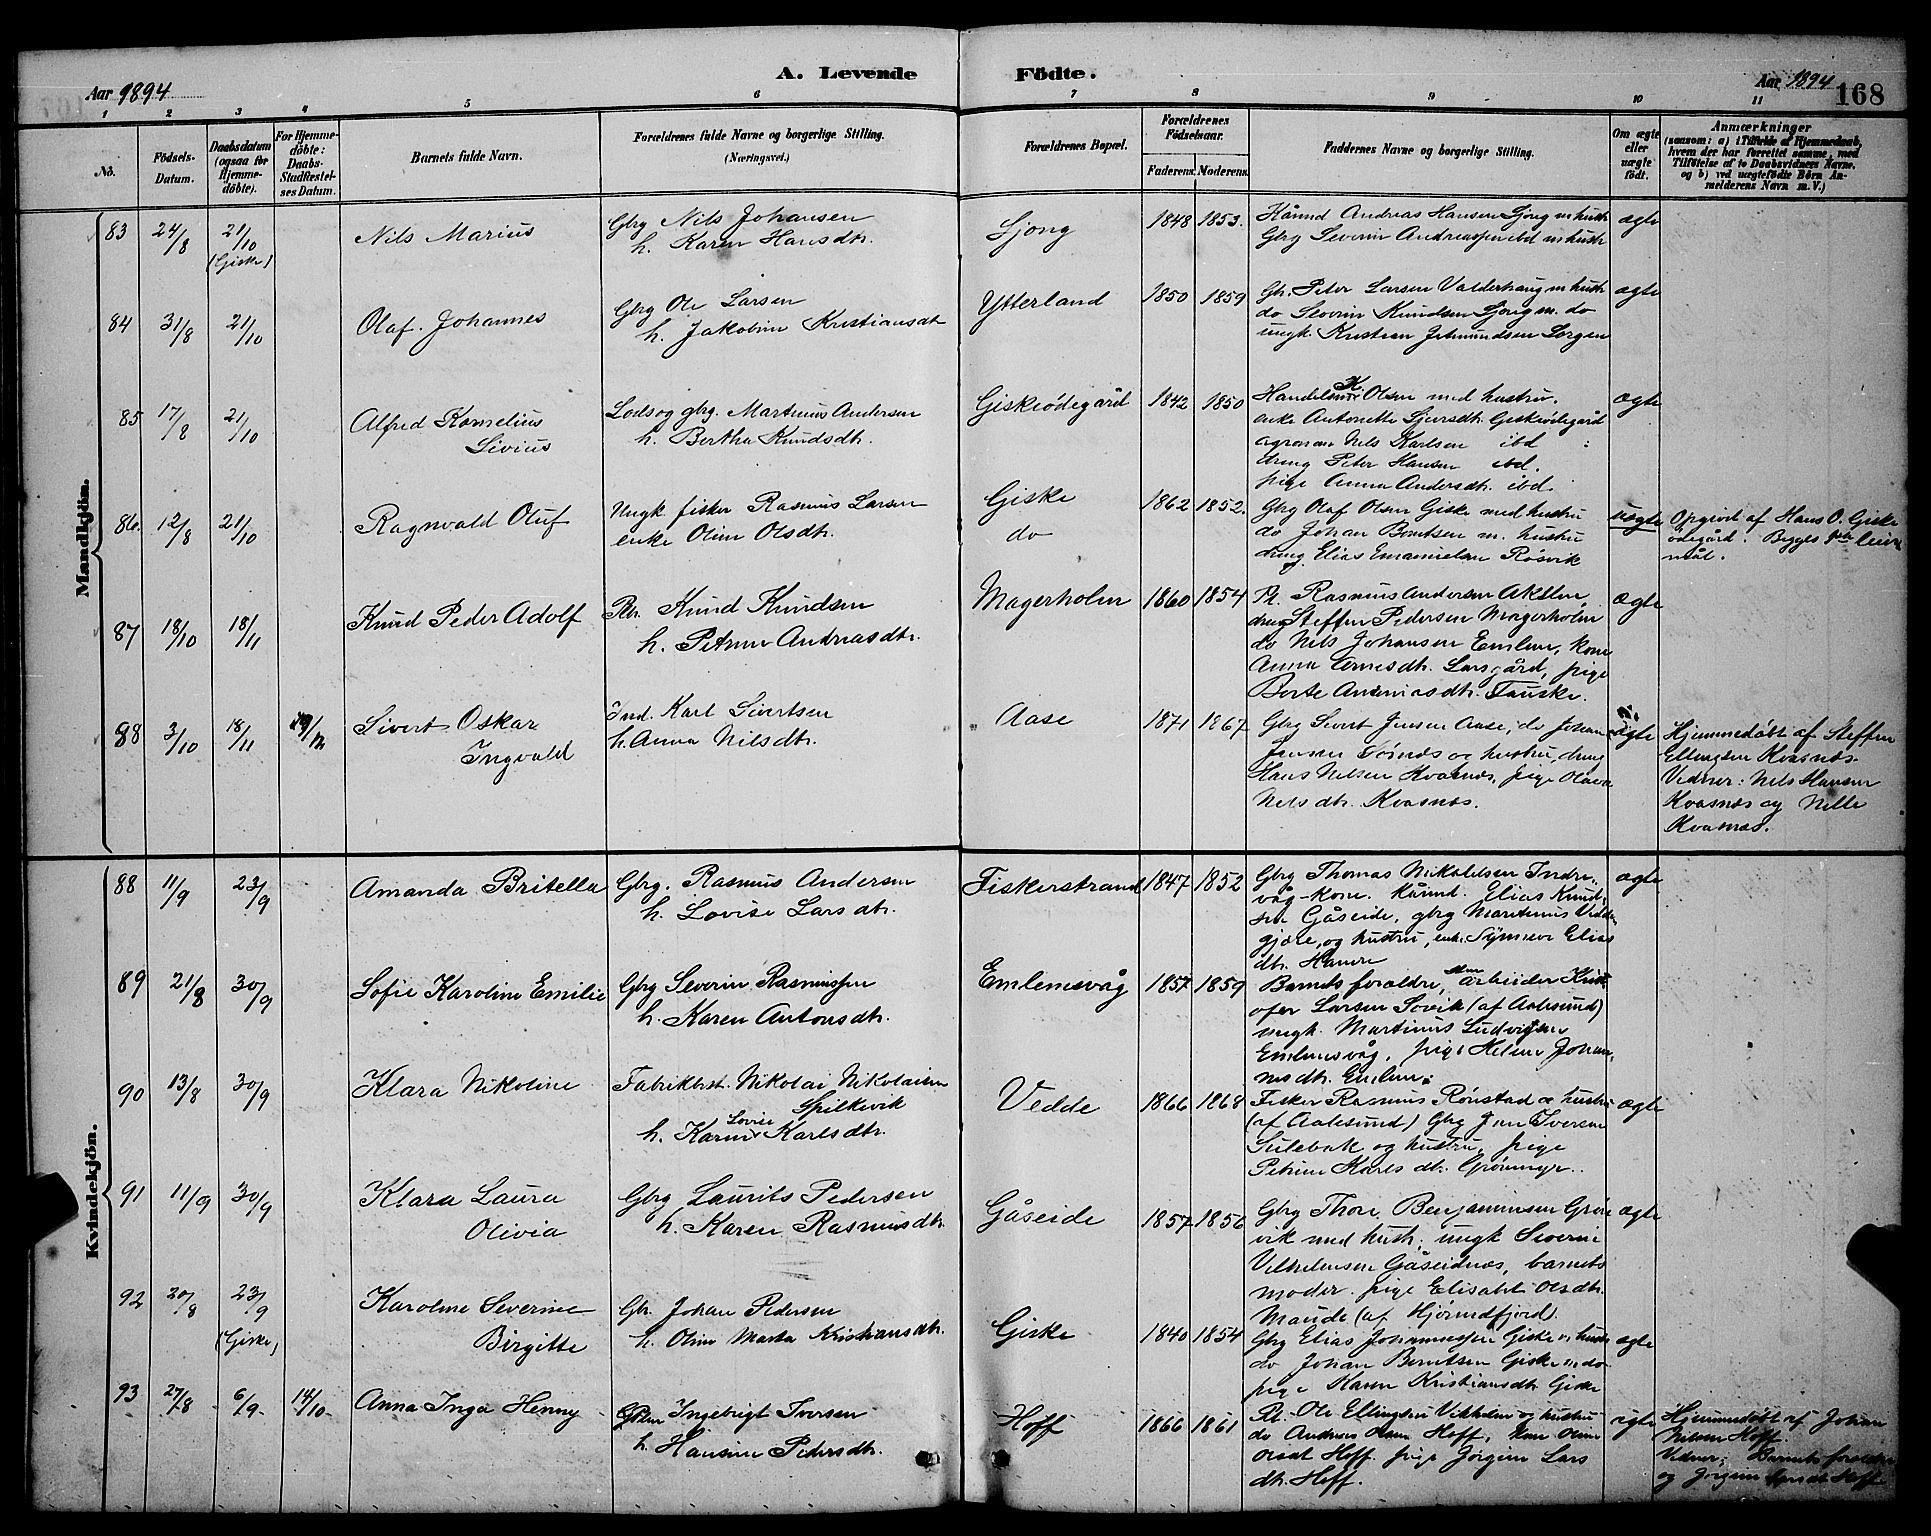 Aar 1894
A. Levende
Födte.
Aar 1894
168
1 2 3 4 5 6 7 8 9 10 11
No.
Födsels-Datum.
Daabsdatum (ogsaa for Hjemme-döbte).
For Hjemme-döbte: Daabs-Stadfæstel-ses Datum.
Barnets fulde Navn.
Forældrenes fulde Navne og borgerlige Stilling.
(Næringsvei.)
Forældrenes Bopæl.
Forældrenes Födselsaar.
Faderens. Moderens.
Faddernes Navne og borgerlige Stilling.
Om ægte eller uægte födt.
Anmærkninger
(saasom: a) i Tilfælde af Hjemmedaab,
hvem der har forrettet samme, med
Tilföielse af to Daabsvidners Navne.
og b) ved uægtefödte Börn An-
melderens Navn m. V.)
Mandkjön.
83 24/8 21/10 (Giske)
Nils Marius
Gbrg Nils Johansen
h. Karen Hansdtr.
Ljong
1848 1853.
Kårmd Andreas Hansen Ljong m hustr
Gbrg Severin Andreassen ibd m hustr
ægte
84 31/8 21/10
Olaf Johannes
Gbrg Ole Larsen
h. Jakobine Kristiansdt
Ytterland
1850 1859
Gbr. Peter Larsen Valderhaug m hustr
do Severin Knudsen Ljong m. do
ungk. Kristian Jetmundsen Sorgen
ægte
85 17/8 21/10
Alfred Kornelius
Sivius
Lods og gbrg. Martinus Andersen
h. Bertha Knudsdtr.
Giskeödegård
1842 1850
Handelsm K. Olsen med hustru.
enke Antonette Sjursdtr. Giskeödegård
agronom Nils Karlsen ibd
dreng Peter Hansen ibd.
pige Anna Andersdtr. ibd.
ægte
86. 12/8 21/10
Ragnvald Oluf
Ungk. fisker Rasmus Larsen
enke Oline Olsdtr.
Giske
do
1862 1852.
Gbrg Olaf Olsen Giske med hustru
do Johan Berntsen m. hustru
dreng Elias Emanuelsen Rösvik
uægte
Opgivet af Hans O. Giske
ödegård. Begges 1ste leier
mål.
87 18/10 18/11
Knud Peder Adolf
Pbr. Knud Knudsen
h. Petrine Andreasdtr.
Magerholm
1860 1854
Pl. Rasmus Andersen Akslen,
dreng Steffen Pedersen Magerholm
do Nils Johansen Emlem, kone
Anna Arnesdtr. Larsgård, pige
Berte Andreasdtr. Fauske.
ægte
88 3/10 18/11 29/12
Sivert Oskar
Ingvald
Ind. Karl Sivertsen
h. Anna Nilsdtr.
Aase
1871 1867
Gbrg Sivert Jensen Aase, do Johan
Jensen Tönæs og hustru, dreng
Hans Nelsen Kvasnæs, pige Olava
Nelsdtr. Kvasnæs.
ægte
Hjemmedöbt af Steffen
Ellingsen Kvasnæs.
Vidner: Nils Hansen
Kvasnæs og Nille
Kvasnæs.
Kvindekjön.
88 11/9 23/9
Amanda Britella
Gbrg. Rasmus Andersen
h. Lovise Larsdtr.
Fiskerstrand
1847 1852
Gbrg Thomas Nikolisen Indre-
våg - kone. Kårmd. Elias Knud-
sen Gåseide, gbrg Martinus Vedde-
gjære, og hustru, enke Synneve Elias
dtr. Hamre
ægte
89 21/8 30/9
Sofie Karoline Emilie
Gbrg Severin Rasmussen
h. Karen Antonsdtr.
Emlemsvåg
1857 1859
Barnets foraldre, arbeider Krist
ofer Larsen Sövik (af Aalesund)
ungk. Martinus Ludvigsen
Emlemsvåg, pige Heline Johan-
nesdtr. Emlem.
90 13/8 30/9
Klara Nikoline
Fabrikbst. Nikolai Nikolaisen
Spilkevik
h. Karen Lovise Karlsdtr.
Vedde
1866 1868
Fisker Rasmus Rönstad og hustru
(af Aalesund) Gbrg Jon Iversen
Sulebak og hustru, pige
Petrine Karlsdtr. Grönmyr.
ægte
91 11/9 30/9
Klara Laura
Olivia
Gbrg Laurits Pedersen
h. Karen Rasmusdtr.
Gåseide
1857 1856
Gbrg Thore Benjaminsen Gröne
vik med hustr., ungk Severin
Vilhelmsen Gåseidnæs, barnets
moder, pige Elisabet Olsdtr.
Maude (af Hjörundfjord).
ægte
92 20/8 23/9 (Giske)
Karoline Severine
Birgitte
Gbr. Johan Pedersen
h. Oline Marta Kristiansdtr.
Giske
1840 1854
Gbrg Elias Johannessen Giske m hustr
do Johan Berntsen Giske m do
pige Karen Kristiansdtr. Giske
ægte
93 27/8 6/9 14/10
Anna Inga Henny
Ingebrigt Iversen
h. Hansine Pedersdtr.
Hoff
1866 1861
Pl. Ole Ellingsen Vikholm og hustru
do Andreas Olsen Hoff, kone Oline
Olsdt Hoff. pige Jörgine Lars
dtr. Hoff.
ægte
Hjemmedöbt af Johan
Nilsen Hoff.
Vidner: Barnets foraldre
og Jörgine Larsdt Hoff